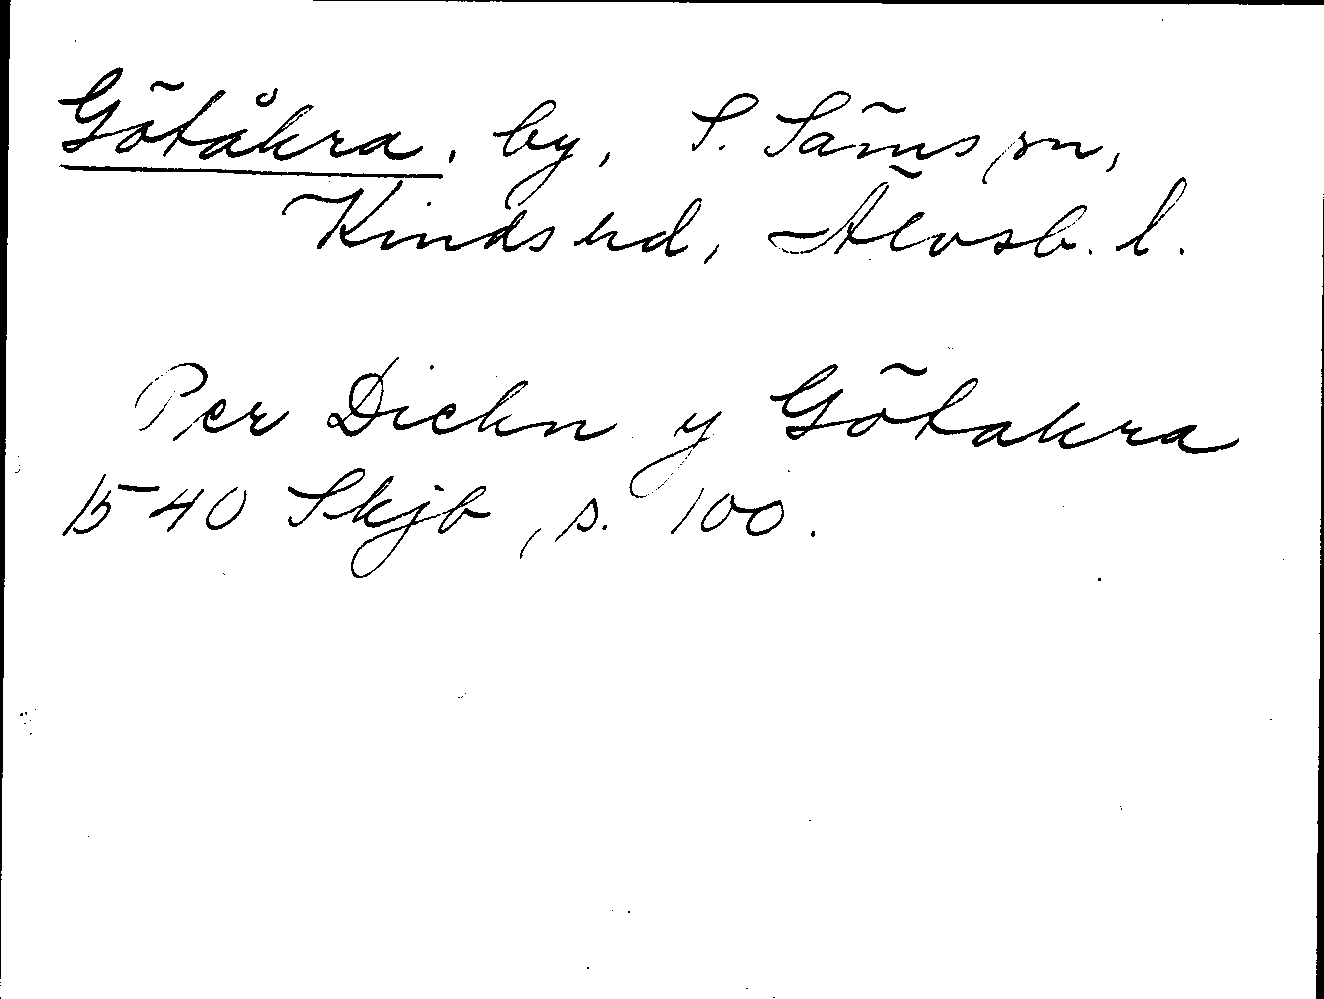 Götåkra, by, S. Säms sn,
Kinds hd, Älvsb. l.
Per Dickn y Götakra
1540 Skjb, s. 100.